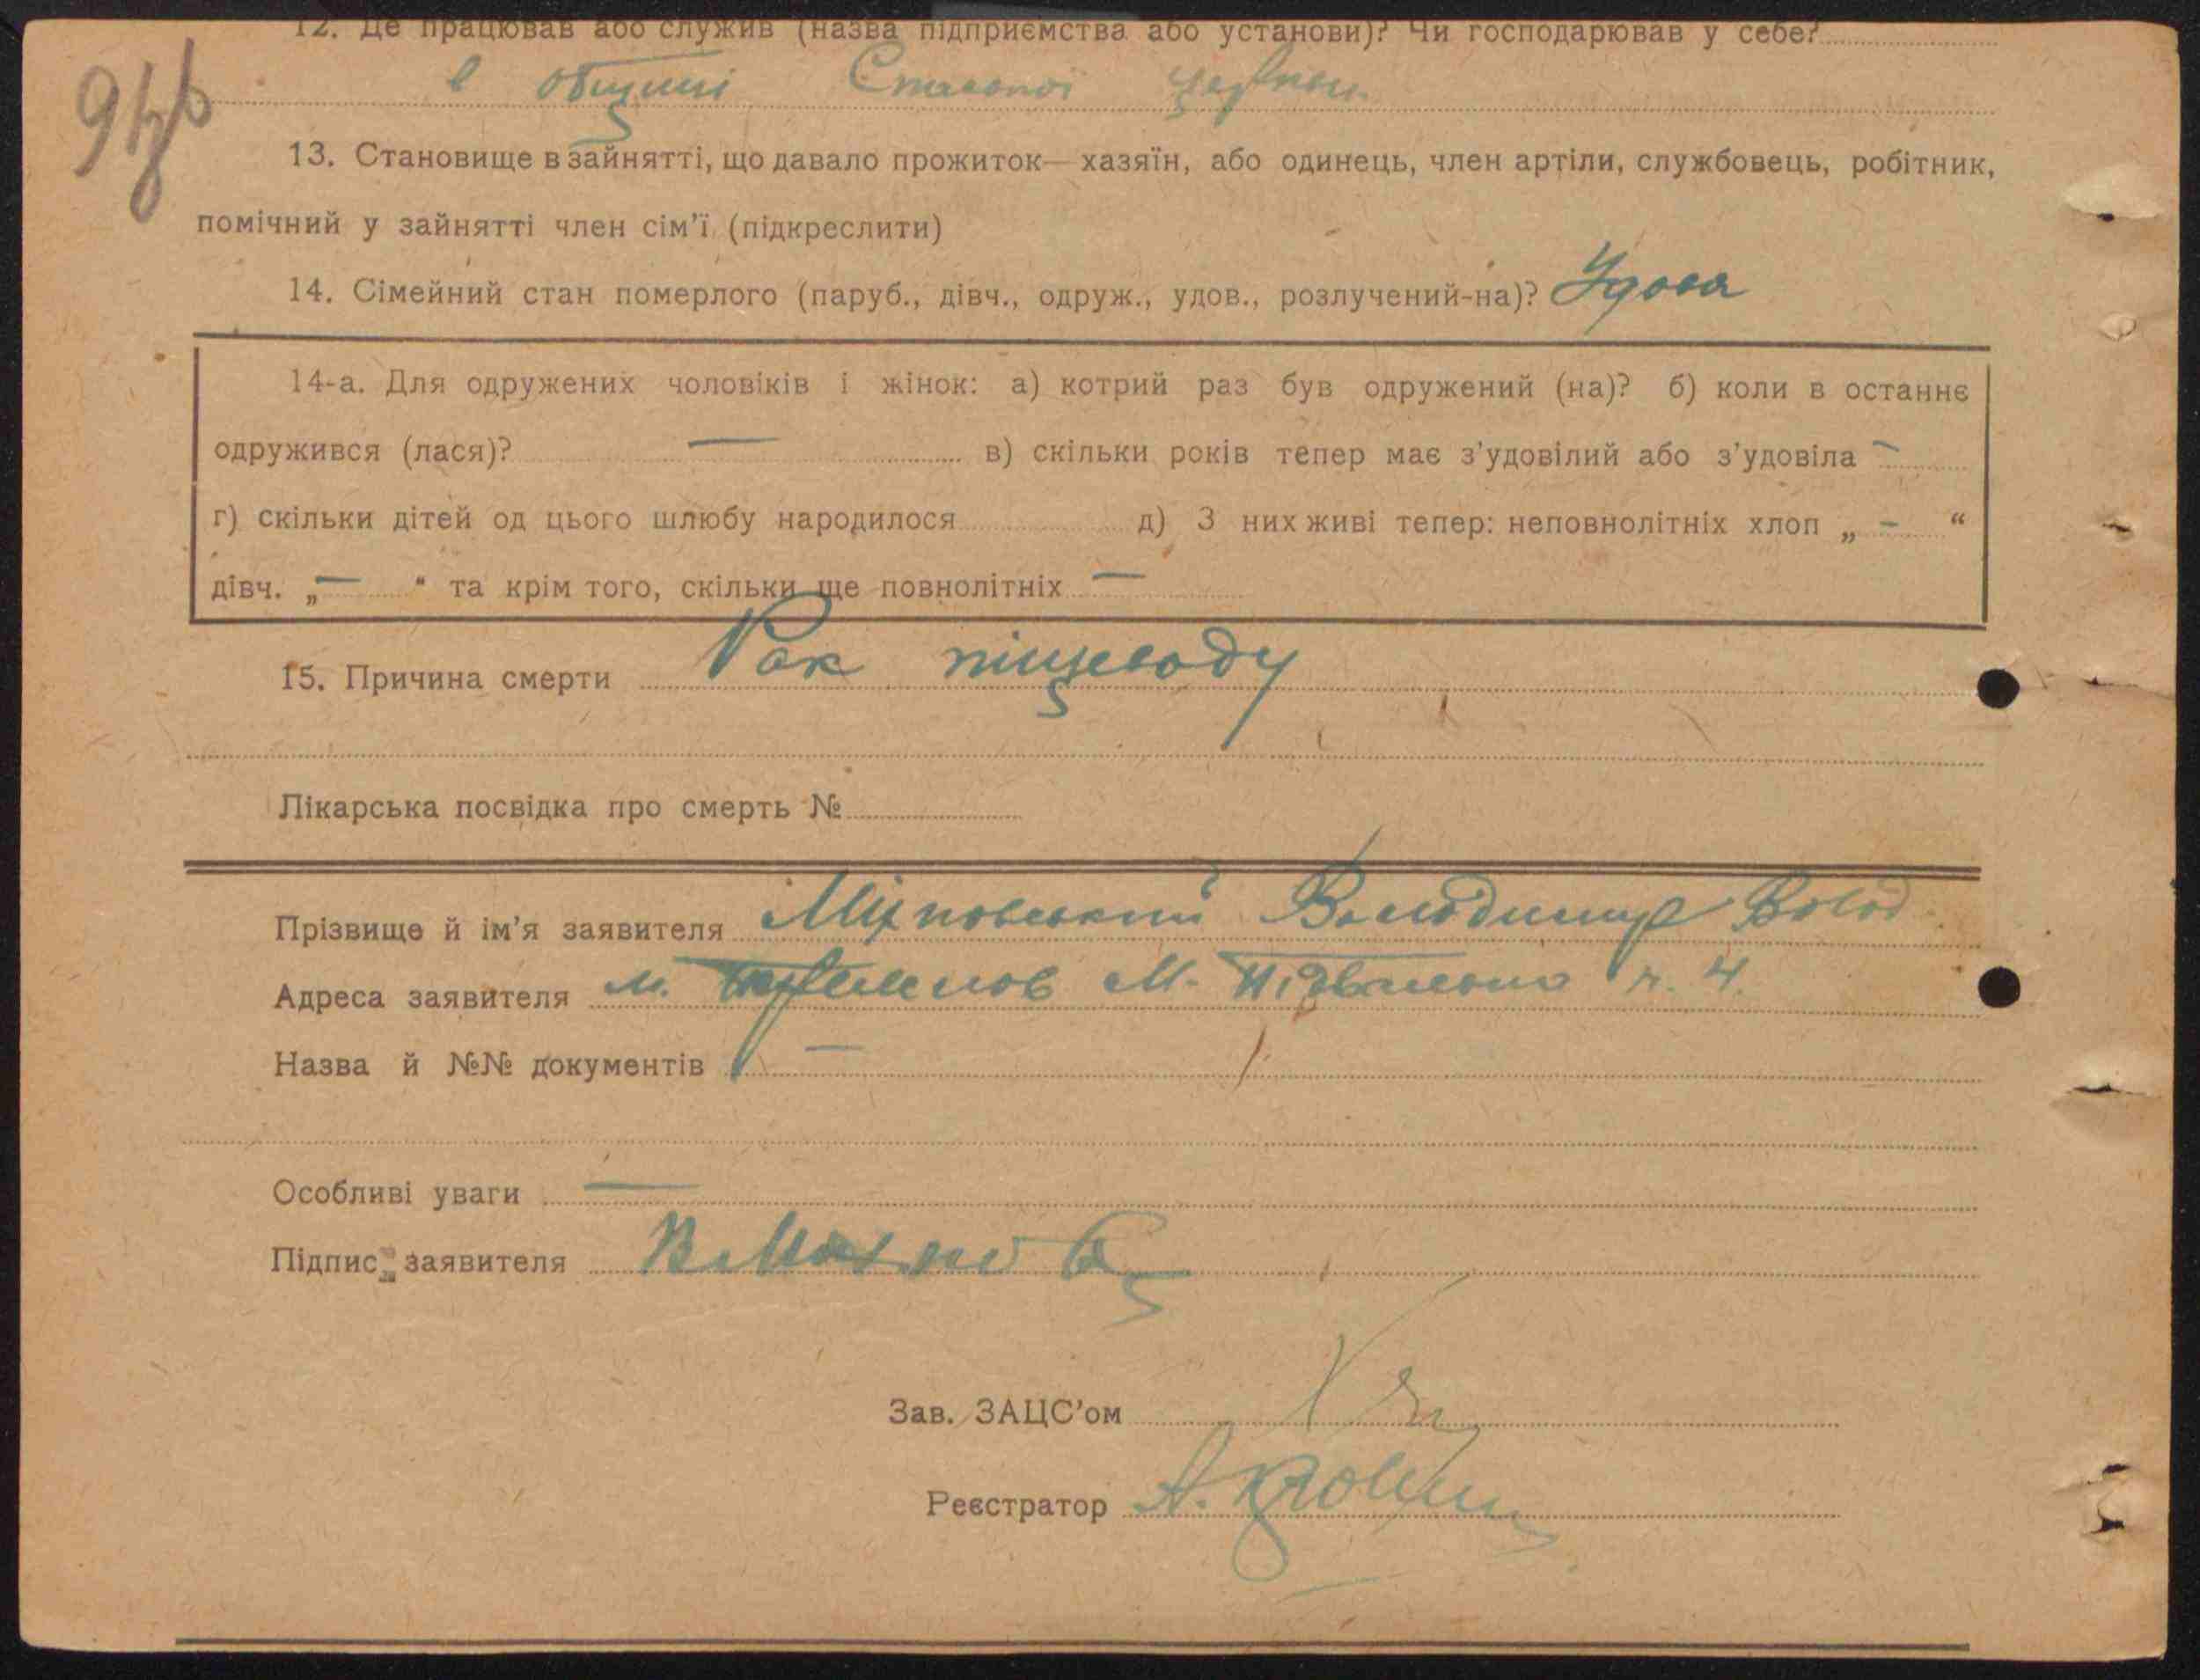 12. Де працював або служив (назва підприємства або установи)? Чи господарював у себе?
в общині Спаської церкви
13. Становище в зайнятті, що давало прожиток — хазяїн, або одинець, член артіли, службовець, робітник,
помічний у зайнятті член сім'ї (підкреслити)
14. Сімейний стан померлого (паруб., дівч., одруж., удов., розлучений-на)? Удова
14-а. Для одружених чоловіків і жінок: а) котрий раз був одружений (на)? б) коли в останнє
одружився (лася)? — в) скільки років тепер має з'удовілий або з'удовіла —
г) скільки дітей од цього шлюбу народилося д) З них живі тепер: неповнолітніх хлоп „ — “
дівч. „ — “ та крім того, скільки ще повнолітніх —
15. Причина смерти Рак піщеводу
Лікарська посвідка про смерть №
Прізвище й ім'я заявителя Міхновський Володимир Волод.
Адреса заявителя м. М. Підвальна ч. 4.
Назва й №№ документів —
Особливі уваги —
Підпис заявителя
Зав. ЗАЦС'ом
Реєстратор А.